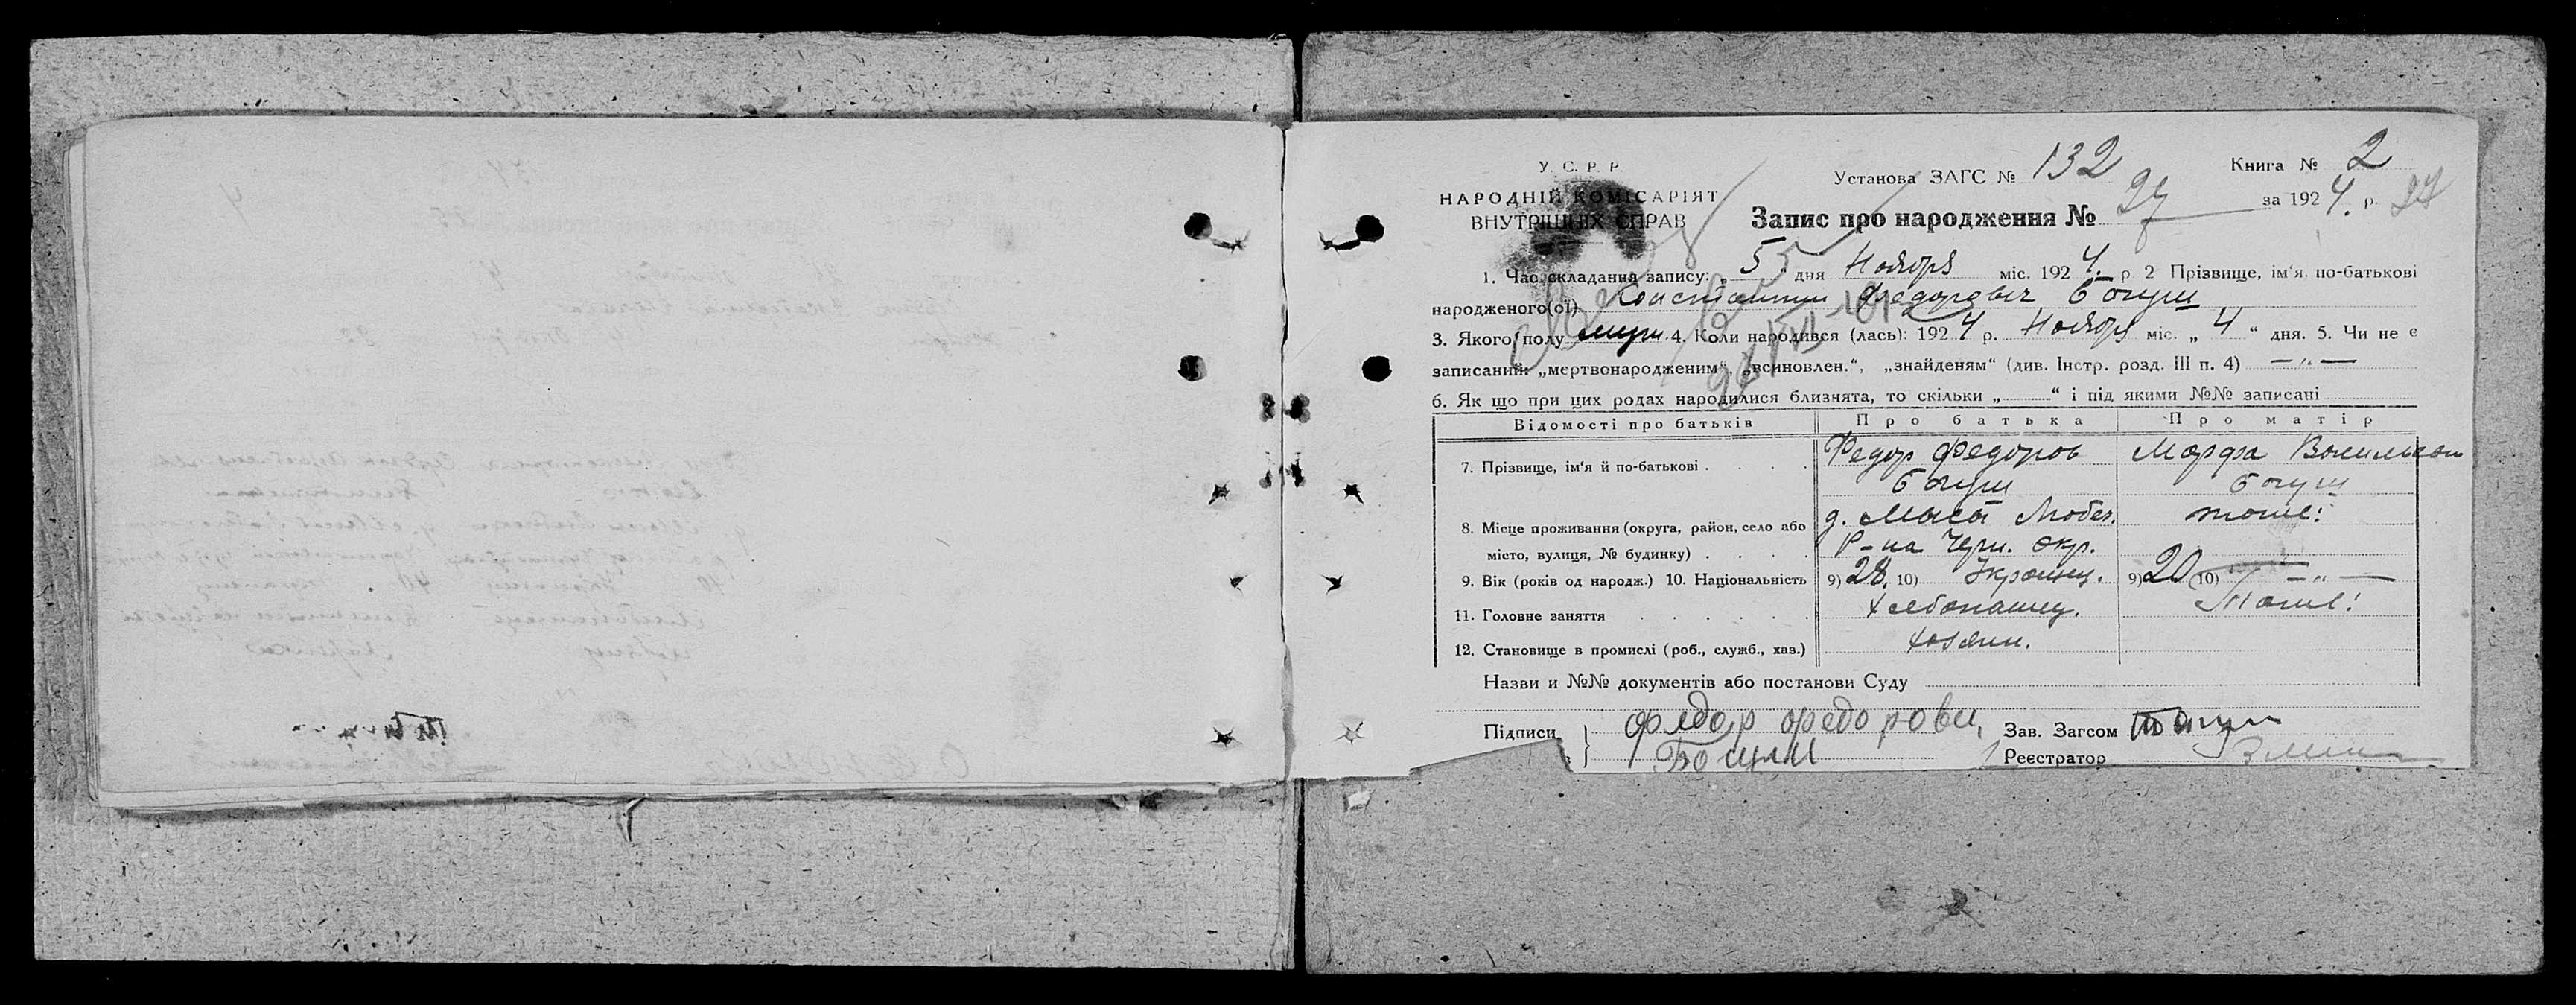 У. С. Р. Р.
НАРОДНІЙ КОМІСАРІЯТ
ВНУТРІШНІХ СПРАВ
Установа ЗАГС № 132
Книга № 2
Запис про народження № 27 за 1924 р. 27
1. Час складання запису: „5" дня Ноября міс. 1924. р. 2 Прізвище, ім'я, по-батькові
народженого(ої) Константин Федорович Богуш
3. Якого полу муж. 4. Коли народився (лась): 1924 р. Ноября міс. „4" дня. 5. Чи не є
записаний: „мертвонародженим", „всиновлен.", „знайденям" (див. Інстр. розд. III п. 4) — „ —
6. Як що при цих родах народилися близнята, то скільки „ " і під якими №№ записані
Відомості про батьків Про батька Про матір
7. Прізвище, ім'я й по-батькові Федор Федоров Марфа
Богуш Богуш
8. Місце проживання (округа, район, село або д. Мысы Любеч. тоже!
місто, вулиця, № будинку) Р-на Черн. окр.
9. Вік (років од народж.) 10. Національність 9) 28. 10) Украинц. 9) 20 10) — „ —
11. Головне заняття хлебопашец. Тоже!
12. Становище в промислі (роб., служб., хаз.) хозяин.
Назви и №№ документів або постанови Суду
Підписи Федор Федорови Зав. Загсом
Богуш Реєстратор